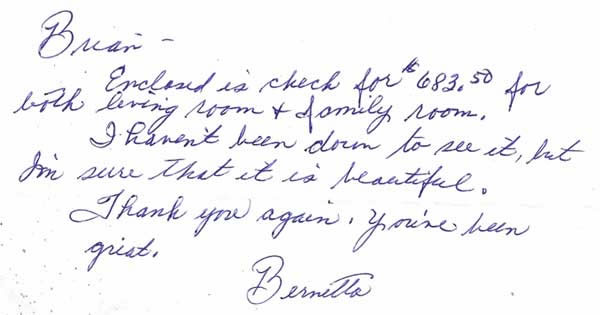 Brian -
Enclosed is check for $683.50 for
both living room & family room.
I haven't been down to see it, but
I'm sure that it is beautiful.
Thank you again. You've been
great.
Bernetta